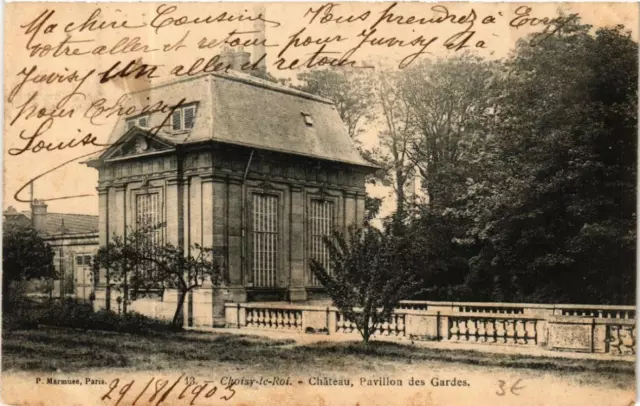 Ma chère Cousine Vous prendrez à Evry
votre aller et retour pour Juvisy et à
Juvisy Un aller et retour
pour Choisy
Louise
P. Marmuse, Paris. 13. - Choisy-le-Roi. - Château, Pavillon des Gardes.
29/8/1903
3€